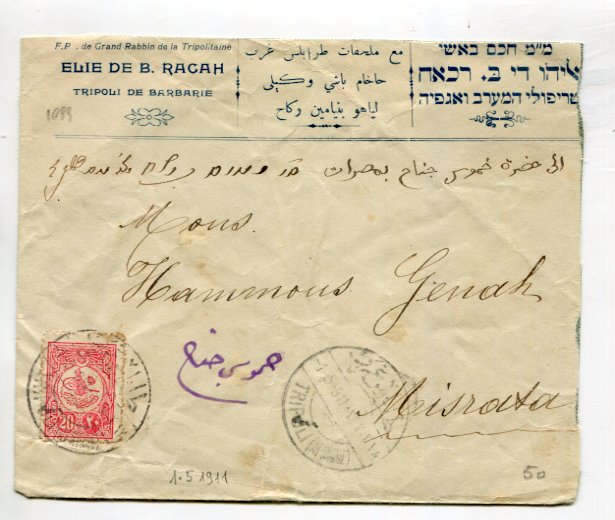 F.P. de Grand Rabbin de la Tripolitaine
ELIE DE B. RACAH
TRIPOLI DE BARBARIE
مع ملحقات طرابلس غرب
حاخام باشي وكيلى
لياهو بنيامين ركاح
מ״מ חכם באשי
אליהו די ב. רכאח
טריפולי המערב ואגפיה
1099
الى حضرة خموس جناح بمصرات
Mons.
Hammous Genah
Misrata
حموس جناح
20 ٢٠
TRIPOLI
1.5.1911
50